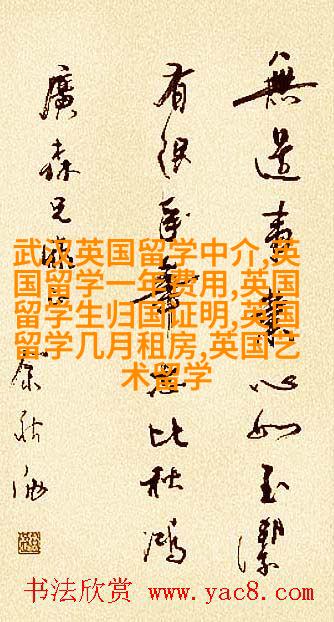 無邊 心如玉潔
有限年華 比秋鴻
廣森兄
余秋雨
武汉英国留学中介,英
国留学一年费用,英国
留学生归国证明,英国
留学几月租房,英国艺
术留学
书法欣赏 www.yac8.com